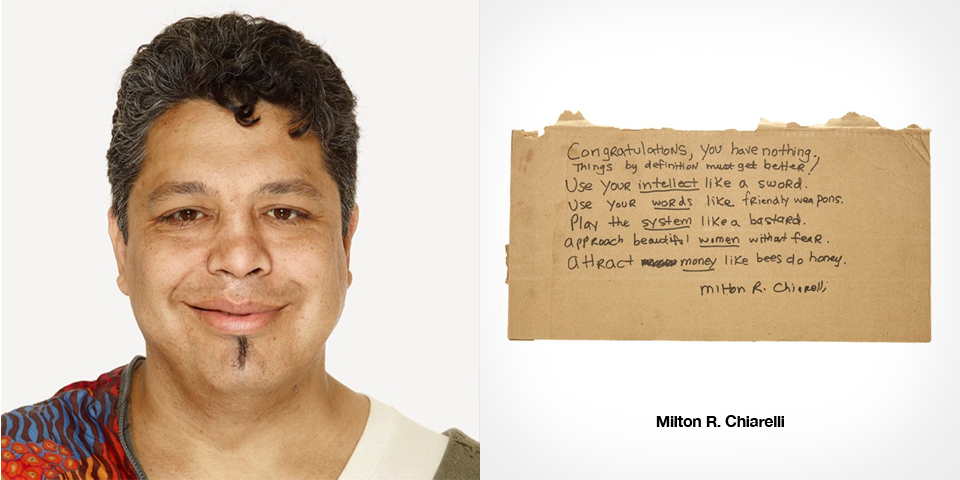 Congratulations, you have nothing,
Things by definition must get better!
Use your intellect like a sword.
Use your words like friendly weapons.
Play the system like a bastard.
approach beautiful women without fear.
attract money like bees do honey.
Milton R. Chiarelli
Milton R. Chiarelli